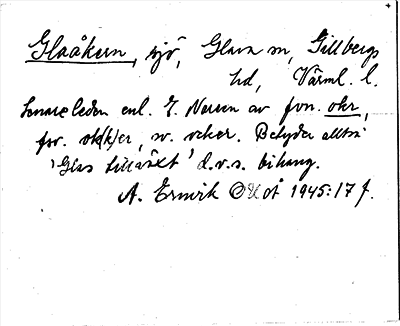 Glaåkern, sjö, Glava sn, Gillbergs
hd, Värml. l.
Senare leden enl. E. Noreen av fvn. okr,
fsv. ok(k)er, sv. ocker. Betyder alltså
'Glas tillväxt' d.v.s. bihang.
A. Ernvik OUoÅ 1945:17 f.